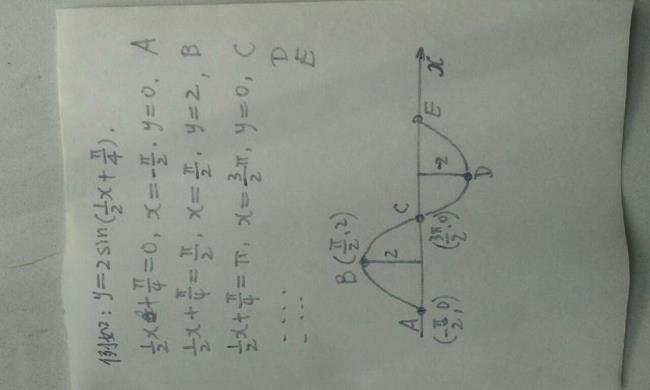 例如: y=2sin(½x+π/4).
½x+π/4=0, x=-π/2, y=0. A
½x+π/4=π/2, x=π/2, y=2, B
½x+π/4=π, x=3/2π, y=0, C
.... D
.... E
B(π/2,2)
2
A
(-π/2,0)
C
(3π/2,0)
-2
D
E
x